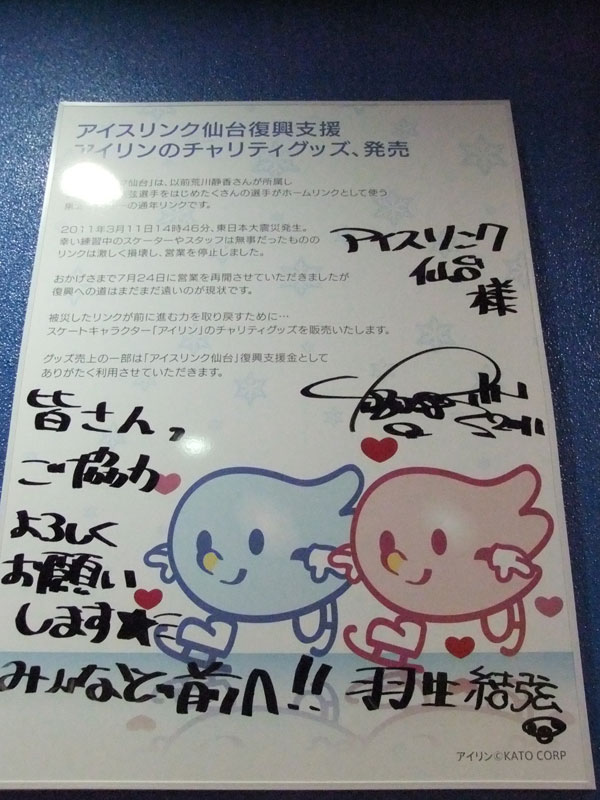 アイスリンク仙台復興支援
アイリンのチャリティグッズ、発売
仙台」は、以前荒川静香さんが所属し
弦選手をはじめたくさんの選手がホームリンクとして使う
の通年リンクです。
2011年3月11日14時46分、東日本大震災発生。
幸い練習中のスケーターやスタッフは無事だったものの
リンクは激しく損壊し、営業を停止しました。
おかげさまで7月24日に営業を再開させていただきましたが
復興への道はまだまだ遠いのが現状です。
被災したリンクが前に進む力を取り戻すために…
スケートキャラクター「アイリン」のチャリティグッズを販売いたします。
グッズ売上の一部は「アイスリンク仙台」復興支援金として
ありがたく利用させていただきます。
アイスリンク
仙台
様
皆さん、
ご協力
よろしく
お願い
します★
みんなと前へ!!
羽生結弦
アイリン©KATO CORP